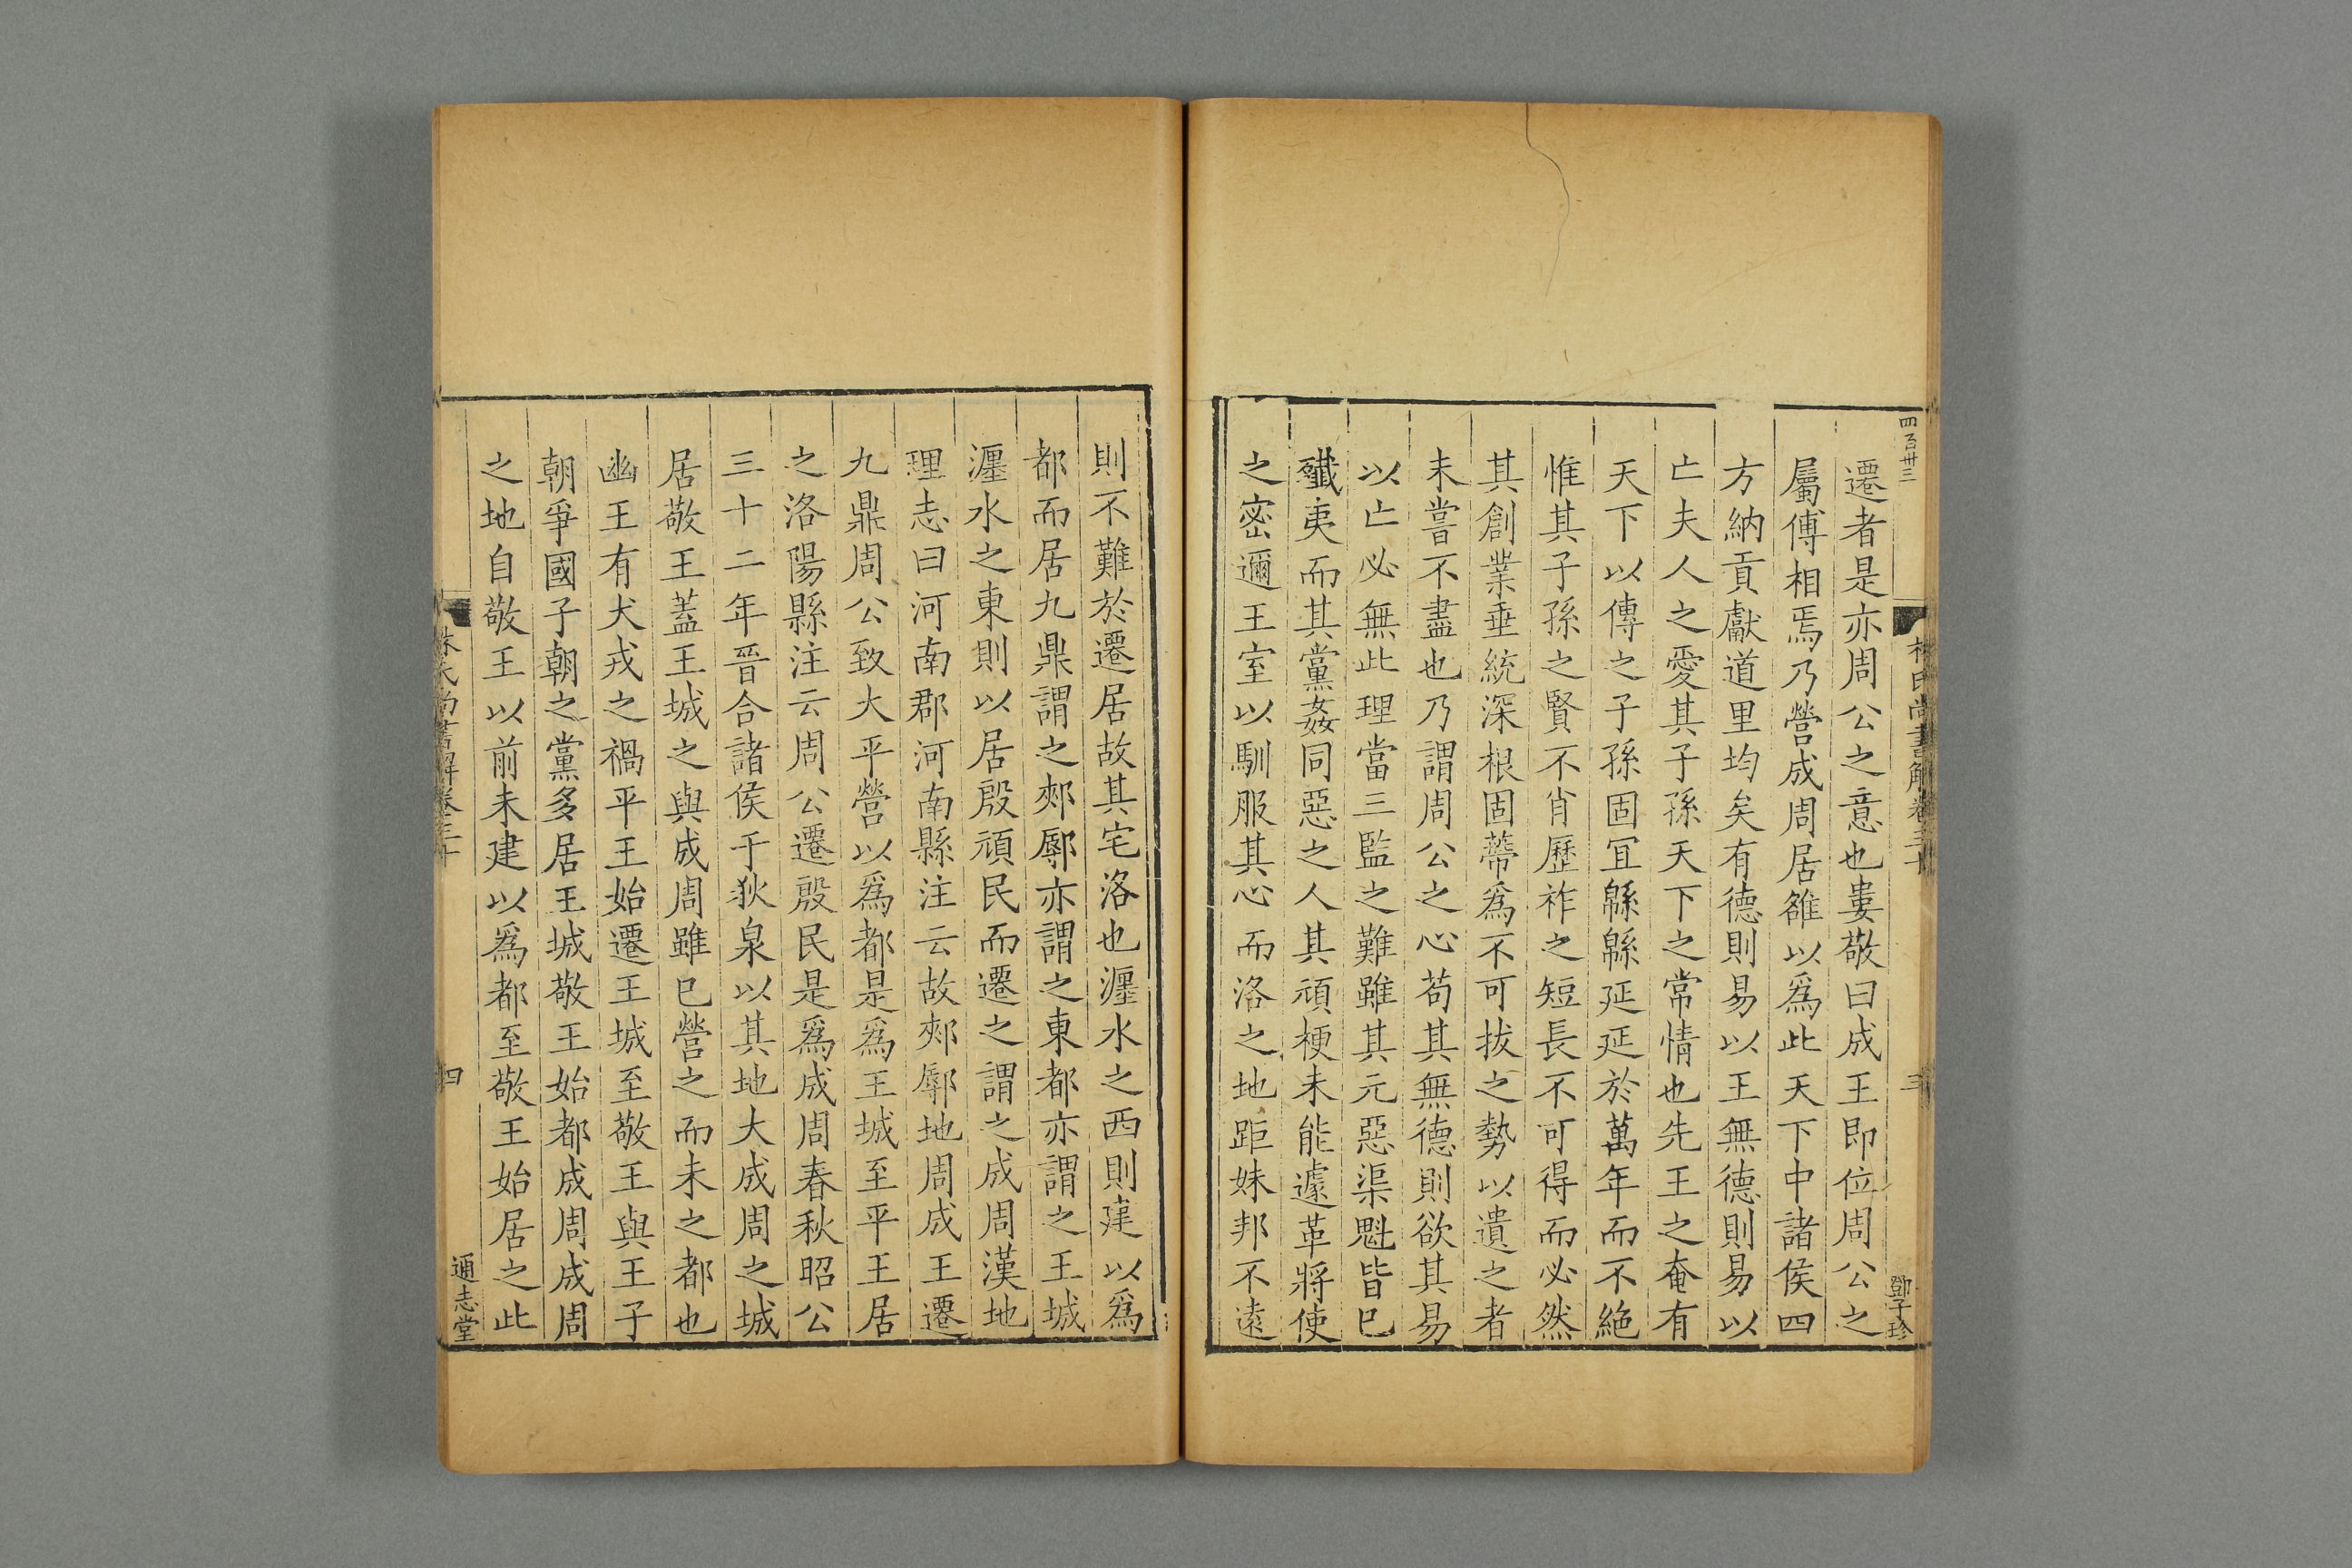 四百卅三
林氏尚書解卷三十
三
鄧子珍
遷者是亦周公之意也婁敬曰成王即位周公之
屬傅相焉乃營成周居雒以爲此天下中諸侯四
方納貢獻道里均矣有德則易以王無德則易以
亡夫人之愛其子孫天下之常情也先王之奄有
天下以傳之子孫固宜緜緜延延於萬年而不絶
惟其子孫之賢不肖歷祚之短長不可得而必然
其創業垂統深根固蔕爲不可拔之勢以遺之者
未嘗不盡也乃謂周公之心苟其無德則欲其易
以亡必無此理當三監之難雖其元惡渠魁皆巳
殲夷而其黨姦同惡之人其頑梗未能遽革將使
之密邇王室以馴服其心而洛之地距妹邦不遠
則不難於遷居故其宅洛也瀍水之西則建以爲
都而居九鼎謂之郟鄏亦謂之東都亦謂之王城
瀍水之東則以居殷頑民而遷之謂之成周漢地
理志曰河南郡河南縣注云故郟鄏地周成王遷
九鼎周公致大平營以爲都是爲王城至平王居
之洛陽縣注云周公遷殷民是爲成周春秋昭公
三十二年晉合諸侯于狄泉以其地大成周之城
居敬王蓋王城之與成周雖巳營之而未之都也
幽王有犬戎之禍平王始遷王城至敬王與王子
朝爭國子朝之黨多居王城敬王始都成周成周
之地自敬王以前未建以爲都至敬王始居之此
林氏尚書解卷三十
四
通志堂